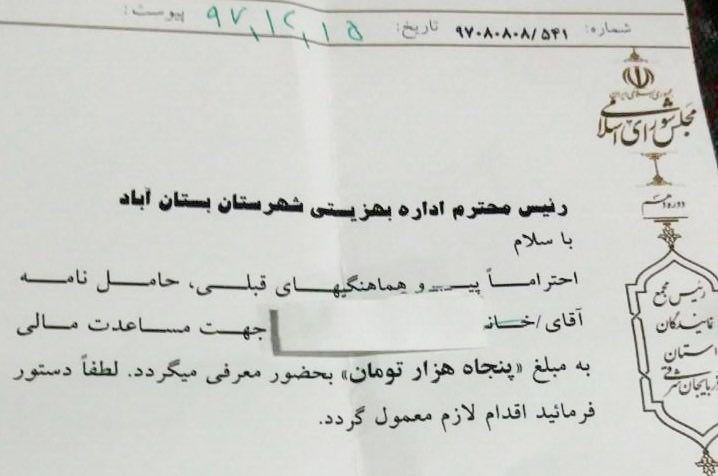 شماره: ۹۷۰۸۰۸۰۸/۵۴۱ تاریخ: ۹۷,۱۲,۱۵ پیوست:
جمهوری اسلامی ایران
مجلس شورای اسلامی
دوره دهم
رئیس محترم اداره بهزیستی شهرستان بستان آباد
با سلام
احتراماً پیـــرو هماهنگیهـــای قبلـــی، حامـــل نامـــه
آقای/خانـ جهت مساعدت مـالی
به مبلغ «پنجاه هزار تومان» بحضور معرفی میگردد. لطفاً دستور
فرمائید اقدام لازم معمول گردد.
رئیس مجمع
نمایندگان
استان
آذربایجان شرقی